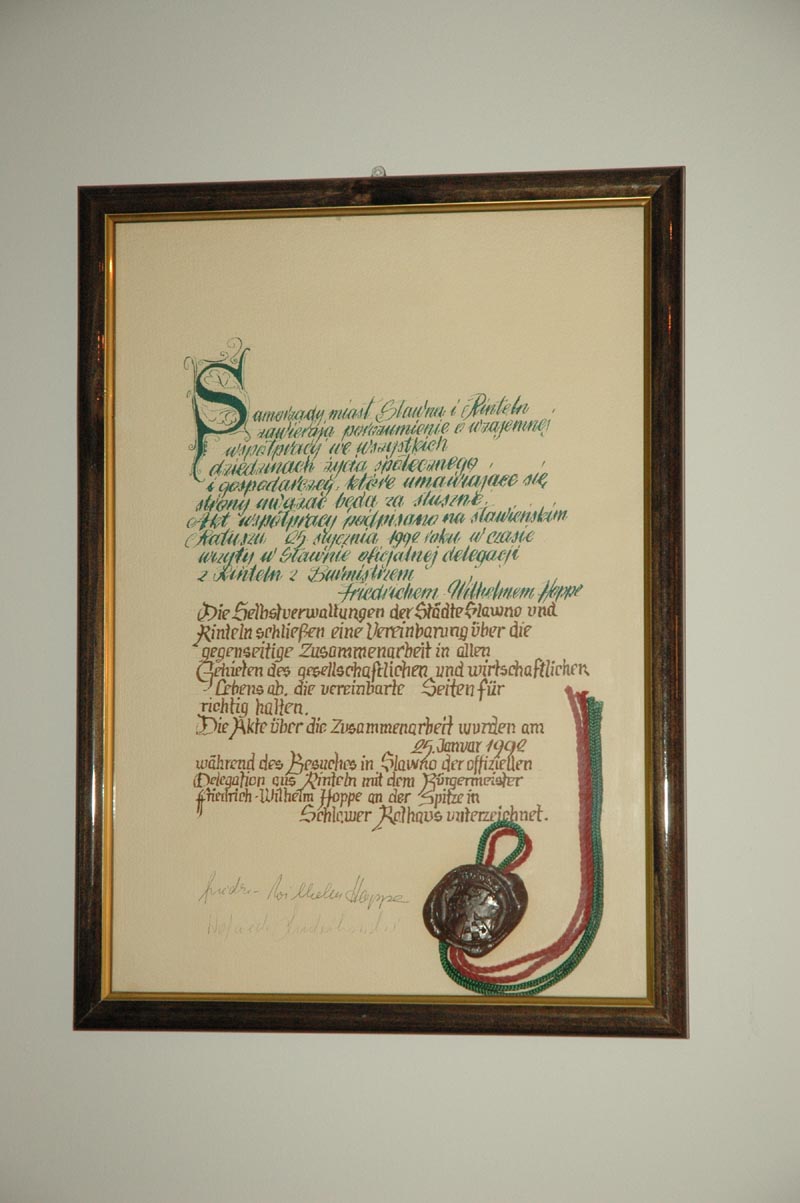 Samorządy miast Sławna i Rinteln
zawierają porozumienie o wzajemnej
współpracy we wszystkich
dziedzinach życia społecznego
i gospodarczej, które umawiające się
strony uważać będą za słuszne.
Akt współpracy podpisano na sławieńskim
Ratuszu 25 stycznia 1992 roku w czasie
wizyty w Sławnie oficjalnej delegacji
z Rinteln z Burmistrzem
Friedrichem Wilhelmem Hoppe
Die Selbstverwaltungen der Städte Slawno und
Rinteln schließen eine Vereinbarung über die
gegenseitige Zusammenarbeit in allen
Gebieten des gesellschaftlichen und wirtschaftlichen
Lebens ab, die vereinbarte Seiten für
richtig halten.
Die Akte über die Zusammenarbeit wurden am
25. Januar 1992
während des Besuches in Slawno der offiziellen
Delegation aus Rinteln mit dem Bürgermeister
Friedrich-Wilhelm Hoppe an der Spitze in
Schlawer Rathaus unterzeichnet.
Hoppe